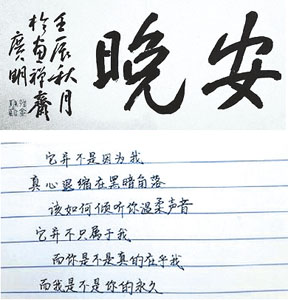 晚安
壬辰秋月
於直禪齋
廣明
它并不是因为我
真心思缩在黑暗角落
该如何倾听你温柔声音
它并不只属于我
而你是不是真的在乎我
而我是不是你的永久